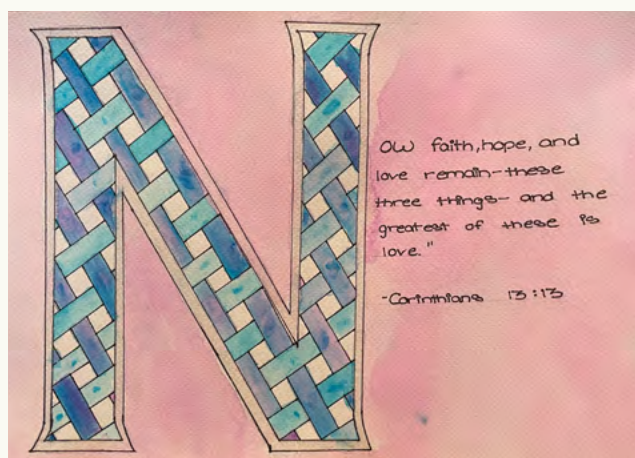 N
OW faith, hope, and
love remain-these
three things- and the
greatest of these is
love."
-Corinthians 13:13